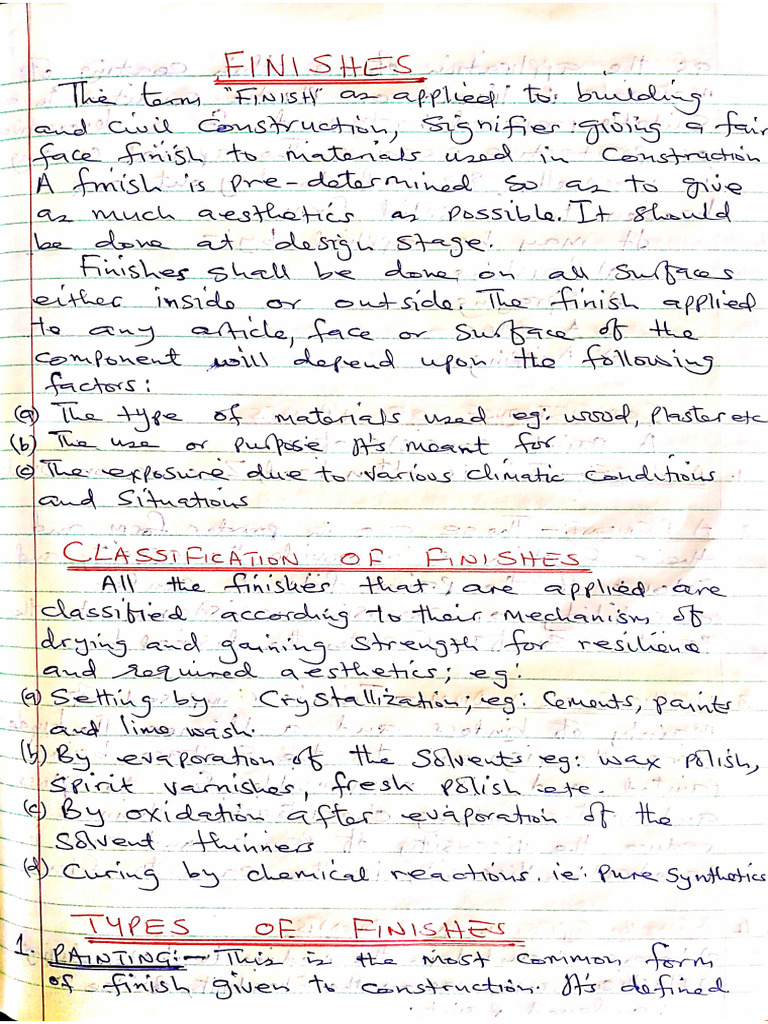 FINISHES
The term "FINISH" as applied to building
and civil construction, signifies giving a fair
face finish to materials used in construction
A finish is pre-determined so as to give
as much aesthetics as possible. It should
be done at design stage.
Finishes shall be done on all surfaces
either inside or outside. The finish applied
to any article, face or surface of the
component will depend upon the following
factors:
(a) The type of materials used eg: wood, plaster etc
(b) The use or purpose it's meant for
(c) The exposure due to various climatic conditions
and situations
CLASSIFICATION OF FINISHES
All the finishes that are applied are
classified according to their mechanism of
drying and gaining strength for resilience
and required aesthetics; eg:
(a) Setting by Crystallization; eg: cements, paints
and lime wash.
(b) By evaporation of the solvents eg: wax polish,
spirit varnishes, fresh polish etc.
(c) By oxidation after evaporation of the
solvent thinners
(d) Curing by chemical reactions. ie: pure synthetics
TYPES OF FINISHES
1. PAINTING:- This is the most common form
of finish given to construction. It's defined